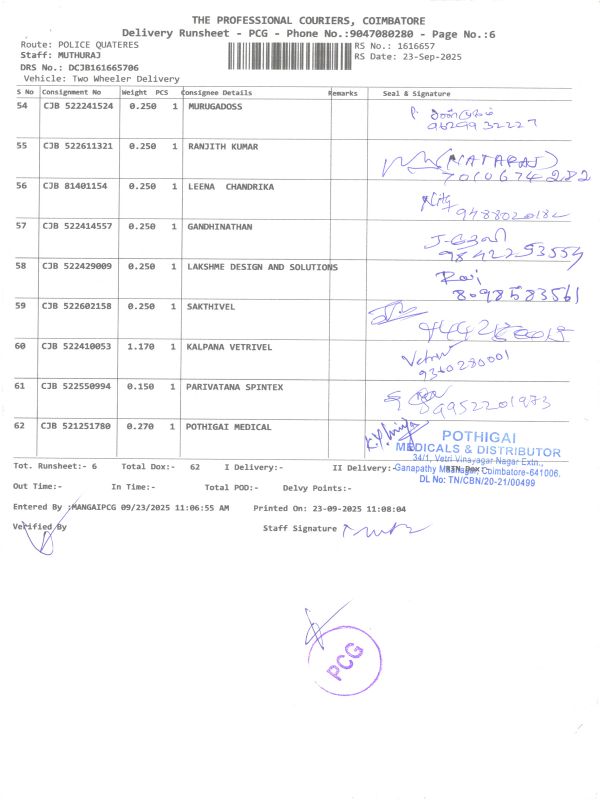 THE PROFESSIONAL COURIERS, COIMBATORE
Delivery Runsheet - PCG - Phone No.:9047080280 - Page No.:6
Route: POLICE QUATERES RS No.: 1616657
Staff: MUTHURAJ RS Date: 23-Sep-2025
DRS No.: DCJB161665706
Vehicle: Two Wheeler Delivery
S No Consignment No Weight PCS Consignee Details Remarks Seal & Signature
54 CJB 522241524 0.250 1 MURUGADOSS
9629932227
55 CJB 522611321 0.250 1 RANJITH KUMAR (NATARAJ)
7010674282
56 CJB 81401154 0.250 1 LEENA CHANDRIKA
57 CJB 522414557 0.250 1 GANDHINATHAN
9842253554
58 CJB 522429009 0.250 1 LAKSHME DESIGN AND SOLUTIONS Ravi
8098583561
59 CJB 522602158 0.250 1 SAKTHIVEL
60 CJB 522410053 1.170 1 KALPANA VETRIVEL
9360280001
61 CJB 522550994 0.150 1 PARIVATANA SPINTEX
09952201973
62 CJB 521251780 0.270 1 POTHIGAI MEDICAL
POTHIGAI
MEDICALS & DISTRIBUTOR
34/1, Vetri Vinayagar Nagar Extn.,
Ganapathy Coimbatore-641006.
DL No: TN/CBN/20-21/00499
Tot. Runsheet:- 6 Total Dox:- 62 I Delivery:- II Delivery:-
Out Time:- In Time:- Total POD:- Delvy Points:-
Entered By :MANGAIPCG 09/23/2025 11:06:55 AM Printed On: 23-09-2025 11:08:04
Verified By Staff Signature
PCG